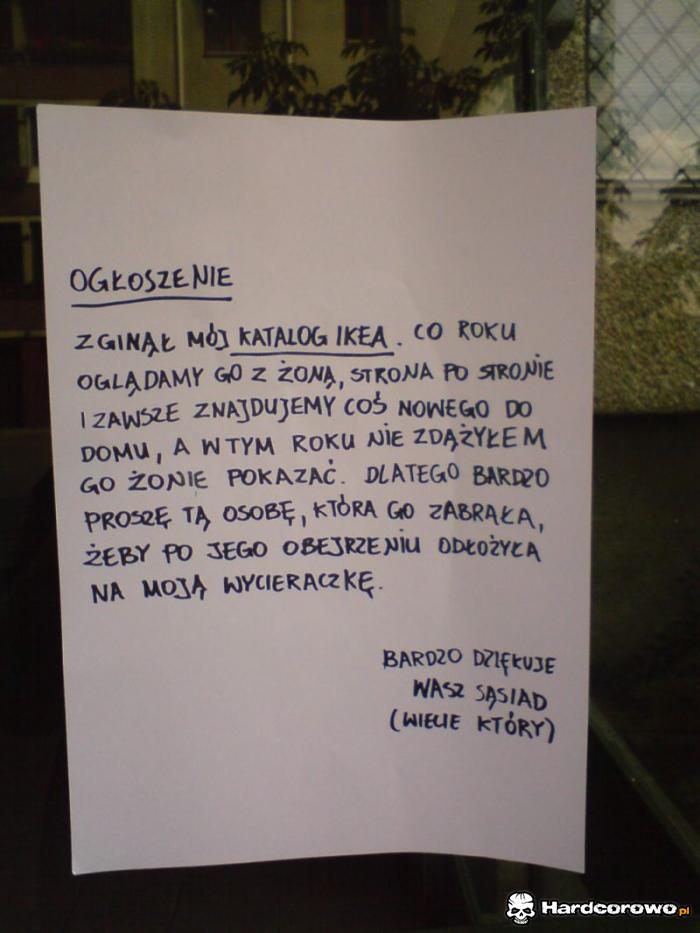 OGŁOSZENIE
ZGINĄŁ MÓJ KATALOG IKEA. CO ROKU
OGLĄDAMY GO Z ŻONĄ, STRONA PO STRONIE
I ZAWSZE ZNAJDUJEMY COŚ NOWEGO DO
DOMU, A W TYM ROKU NIE ZDĄŻYŁEM
GO ŻONIE POKAZAĆ. DLATEGO BARDZO
PROSZĘ TĄ OSOBĘ, KTÓRA GO ZABRAŁA,
ŻEBY PO JEGO OBEJRZENIU ODŁOŻYŁA
NA MOJĄ WYCIERACZKĘ.
BARDZO DZIĘKUJE
WASZ SĄSIAD
(WIECIE KTÓRY)
Hardcorowo.pl